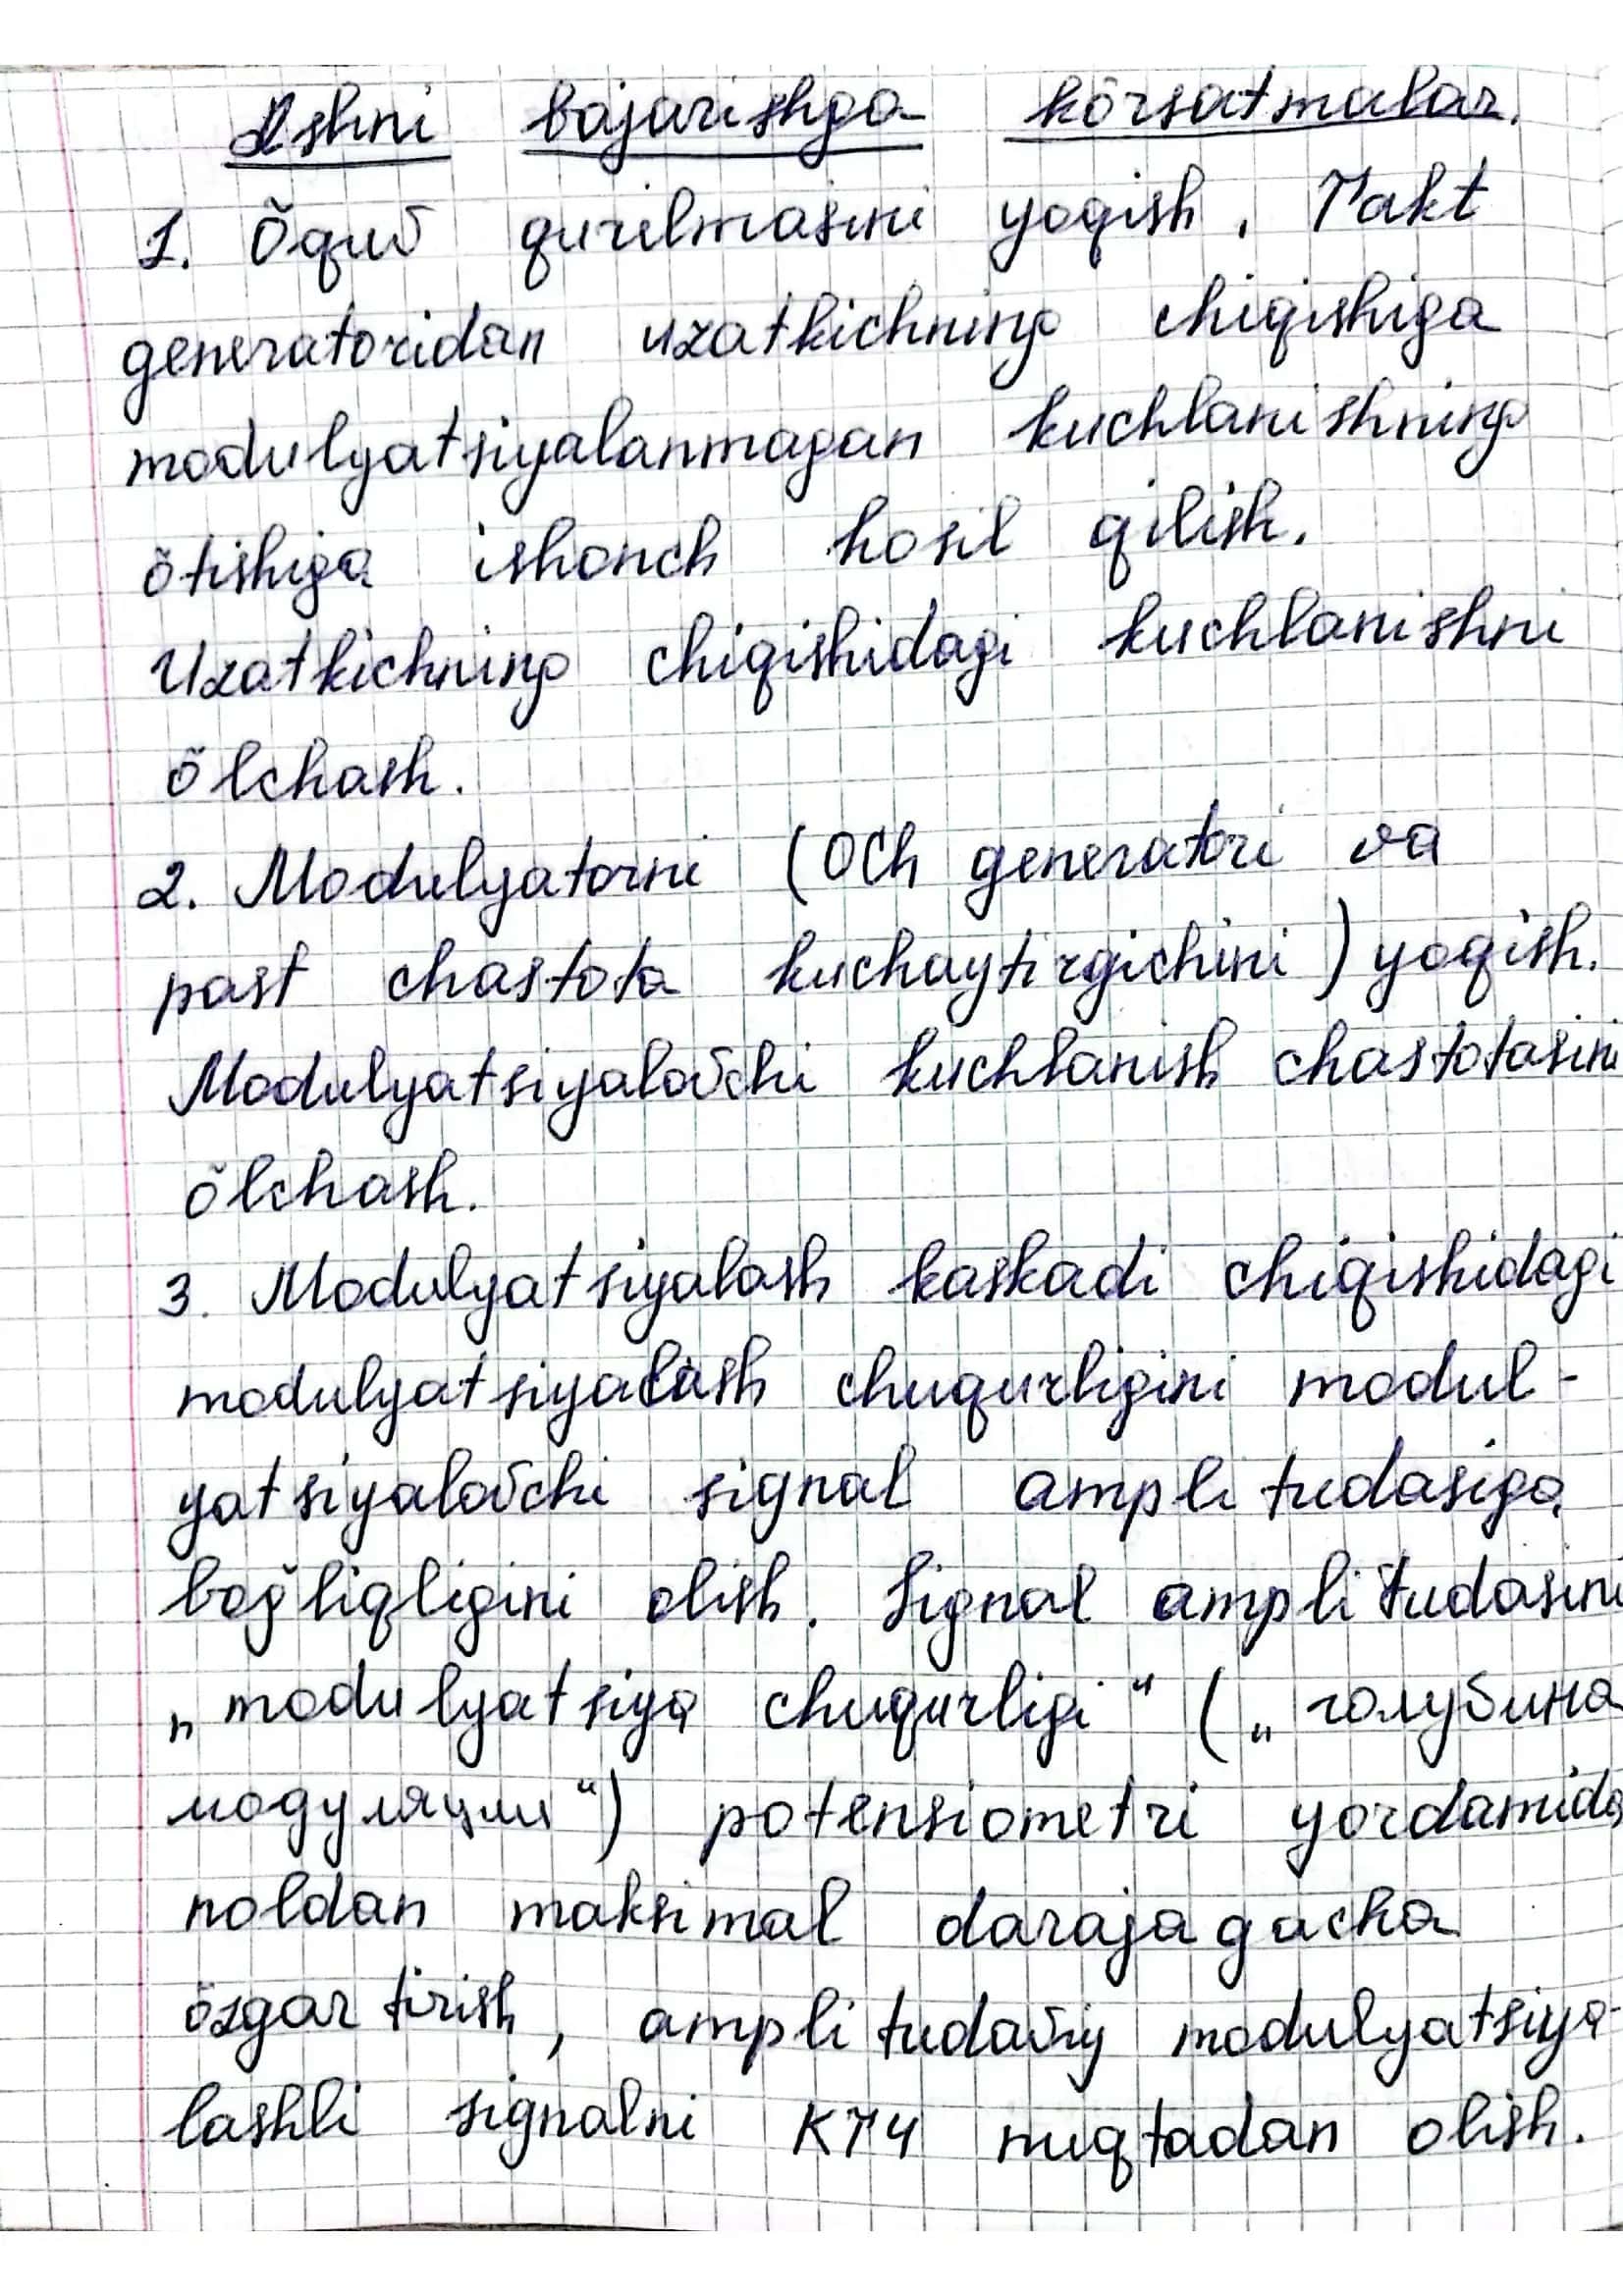 Ishni bajarishga kõrsatmalar.
1. Õquv qurilmasini yoqish. Takt
generatoridan uzatkichning chiqishiga
modulyatsiyalanmagan kuchlanishning
õtishiga ishonch hosil qilish.
Uzatkichning chiqishidagi kuchlanishni
õlchash.
2. Modulyatorni (OCh generatori va
past chastota kuchaytirgichini) yoqish.
Modulyatsiyalovchi kuchlanish chastotasini
õlchash.
3. Modulyatsiyalash kaskadi chiqishidagi
modulyatsiyalash chuqurligini modul-
yatsiyalovchi signal amplitudasiga
boğliqligini olish. Signal amplitudasini
„modulyatsiya chuqurligi“ („голубина
модуляции“) potensiometri yordamida
noldan maksimal darajagacha
õzgartirish, amplitudaviy modulyatsiya-
lashli signalni KT4 nuqtadan olish.